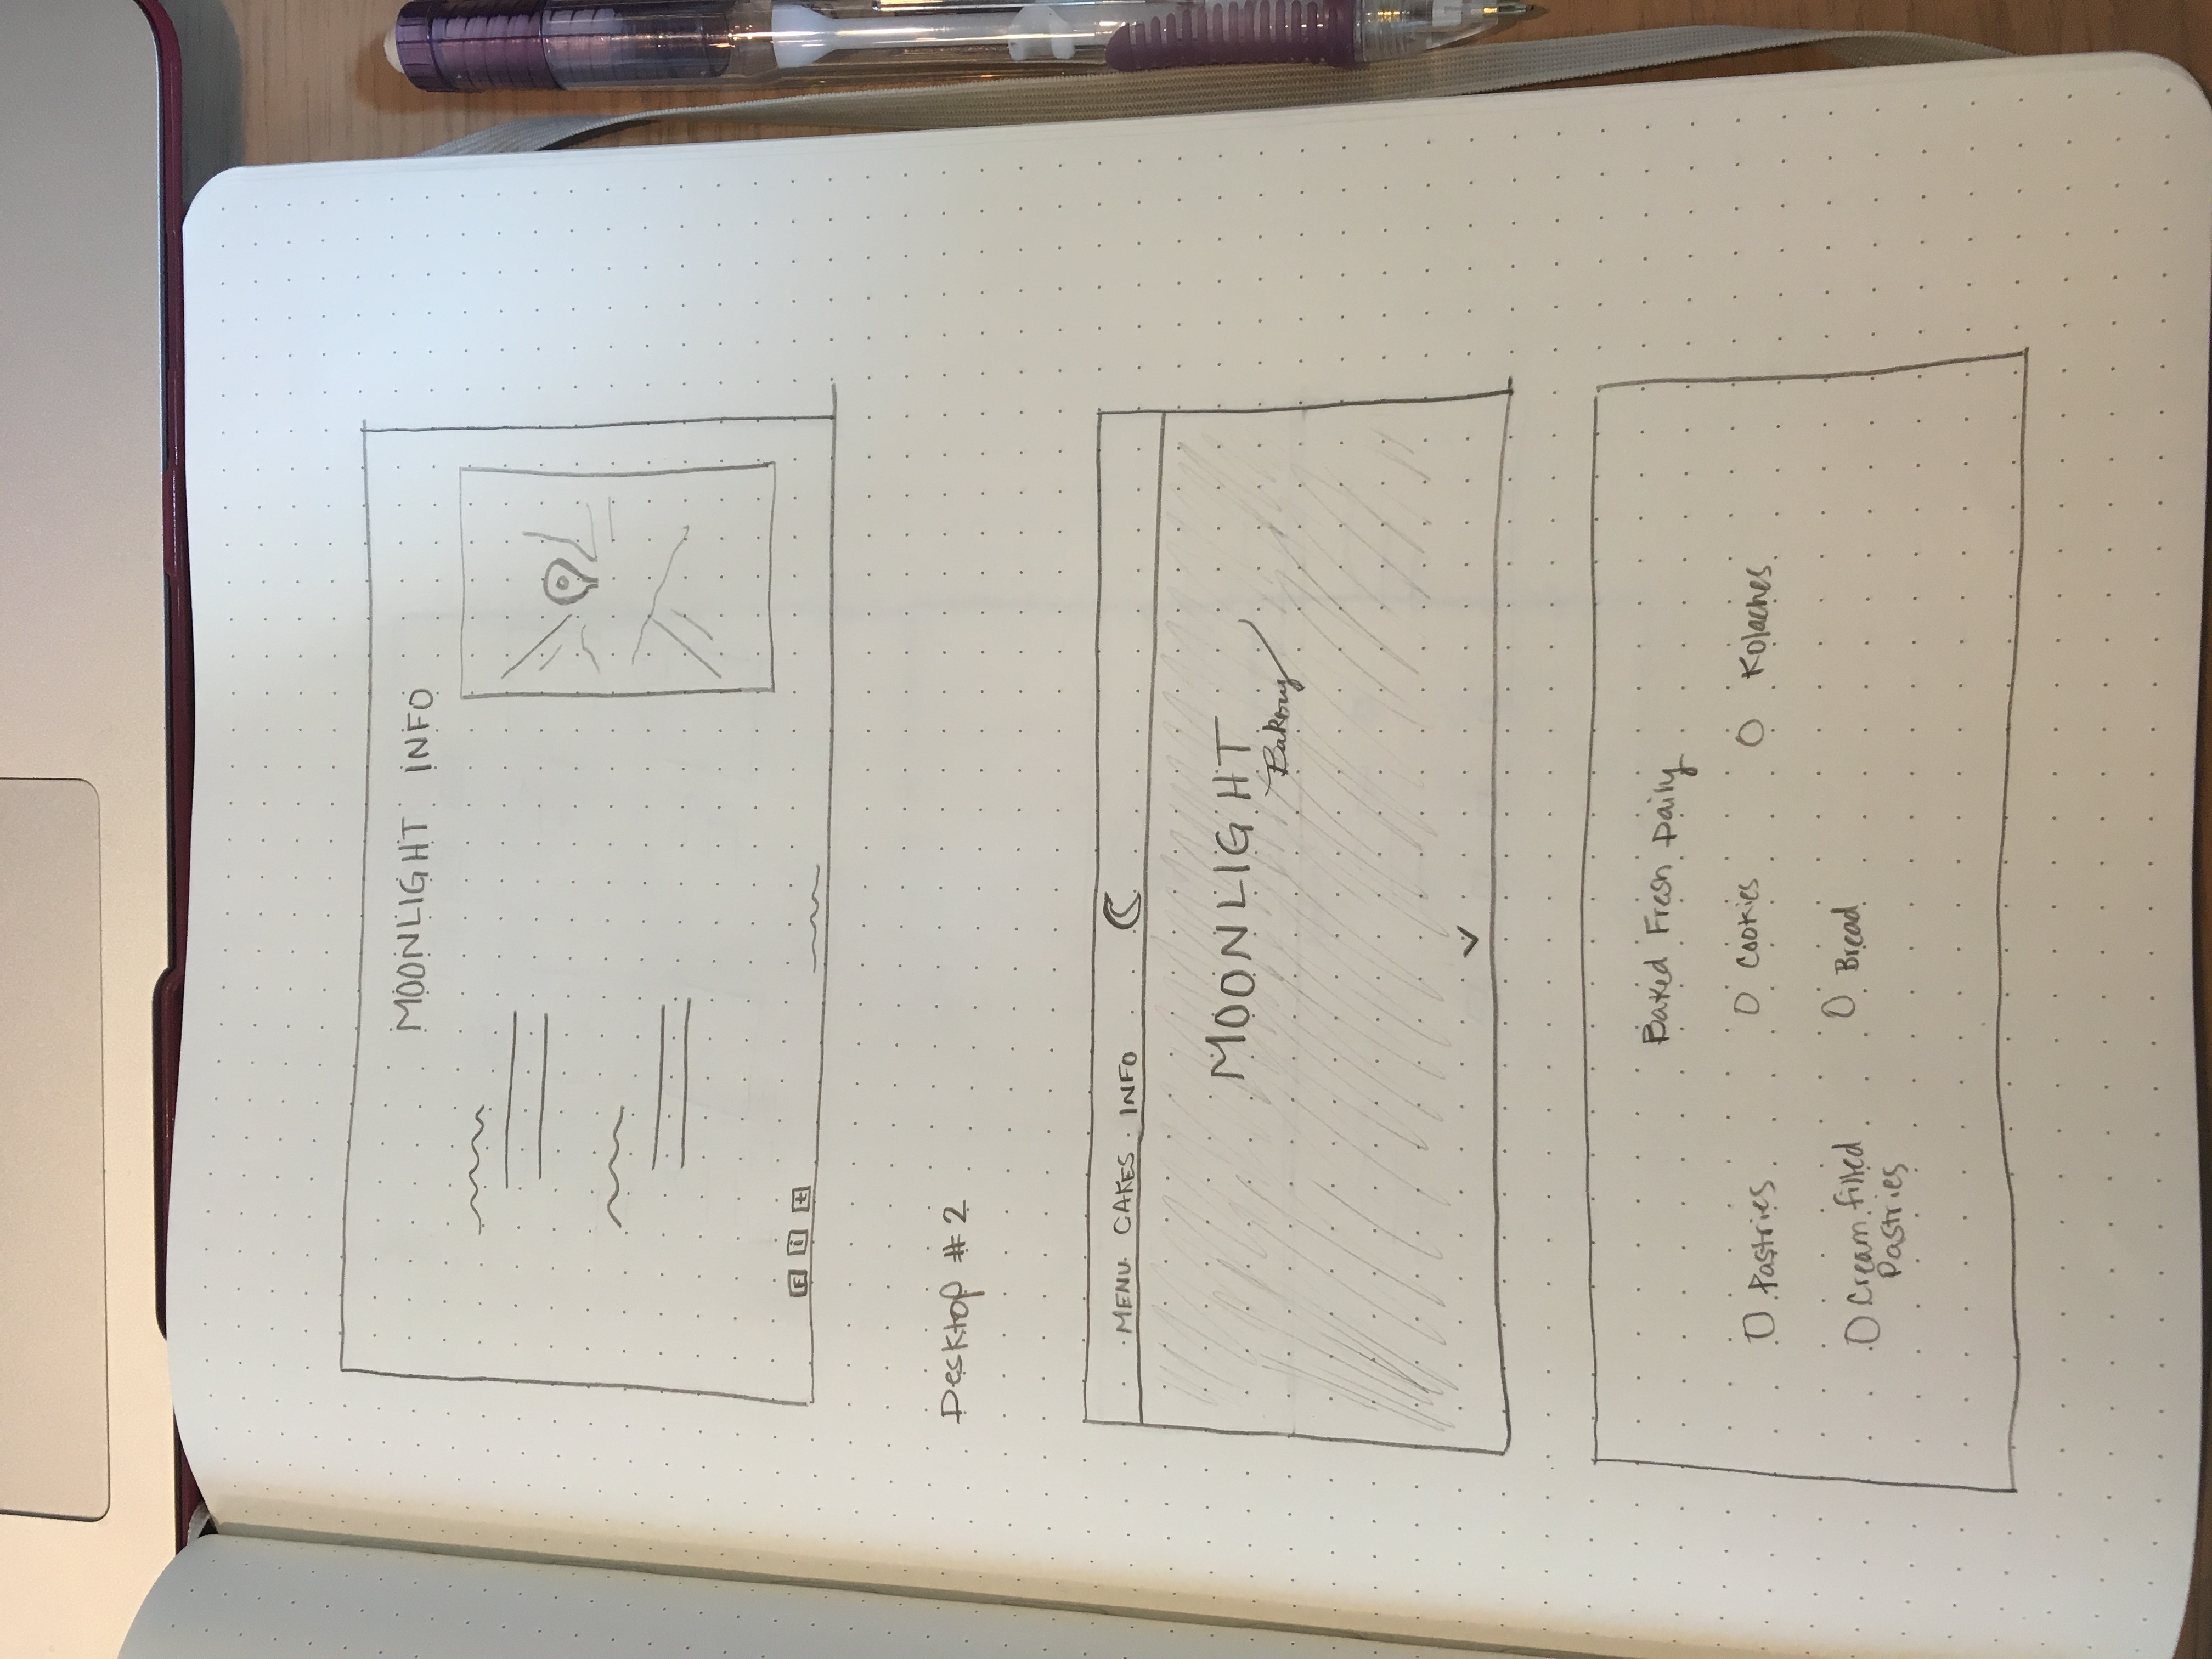 MOONLIGHT INFO
F i t
Desktop #2
MENU CAKES INFO
MOONLIGHT
Bakery
Baked Fresh Daily
Pastries Cookies Kolaches
Cream filled Bread
Pastries